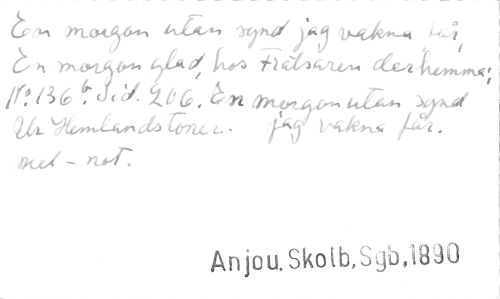 En morgon utan synd jag vakna får,
En morgon glad, hos Frälsaren derhemma;
No. 136 b. Sid. 206. En morgon utan synd
Ur Hemlandstoner. jag vakna får.
mel-not.
Anjou. Skolb, Sgb, 1890